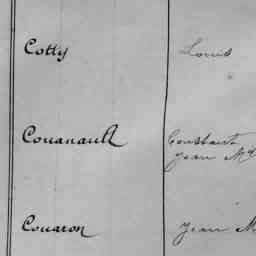 Cotty Louis
Couanault Constant
Jean M
Couaron Jean M